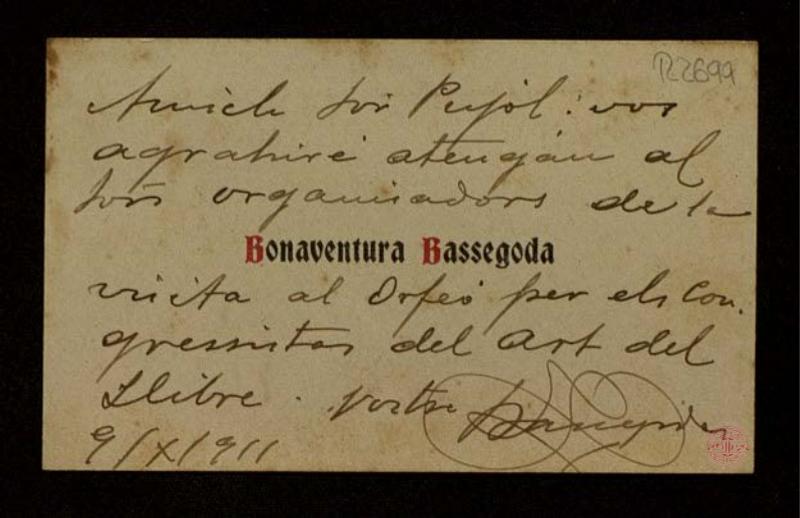 R2699
Amich Sor Pujol: vos
agrahiré atengán al
sors organisadors de la
Bonaventura Bassegoda
visita al Orfeó per els Con.
gressistas del Art del
Llibre. Vostre Bassegoda
9/X/911